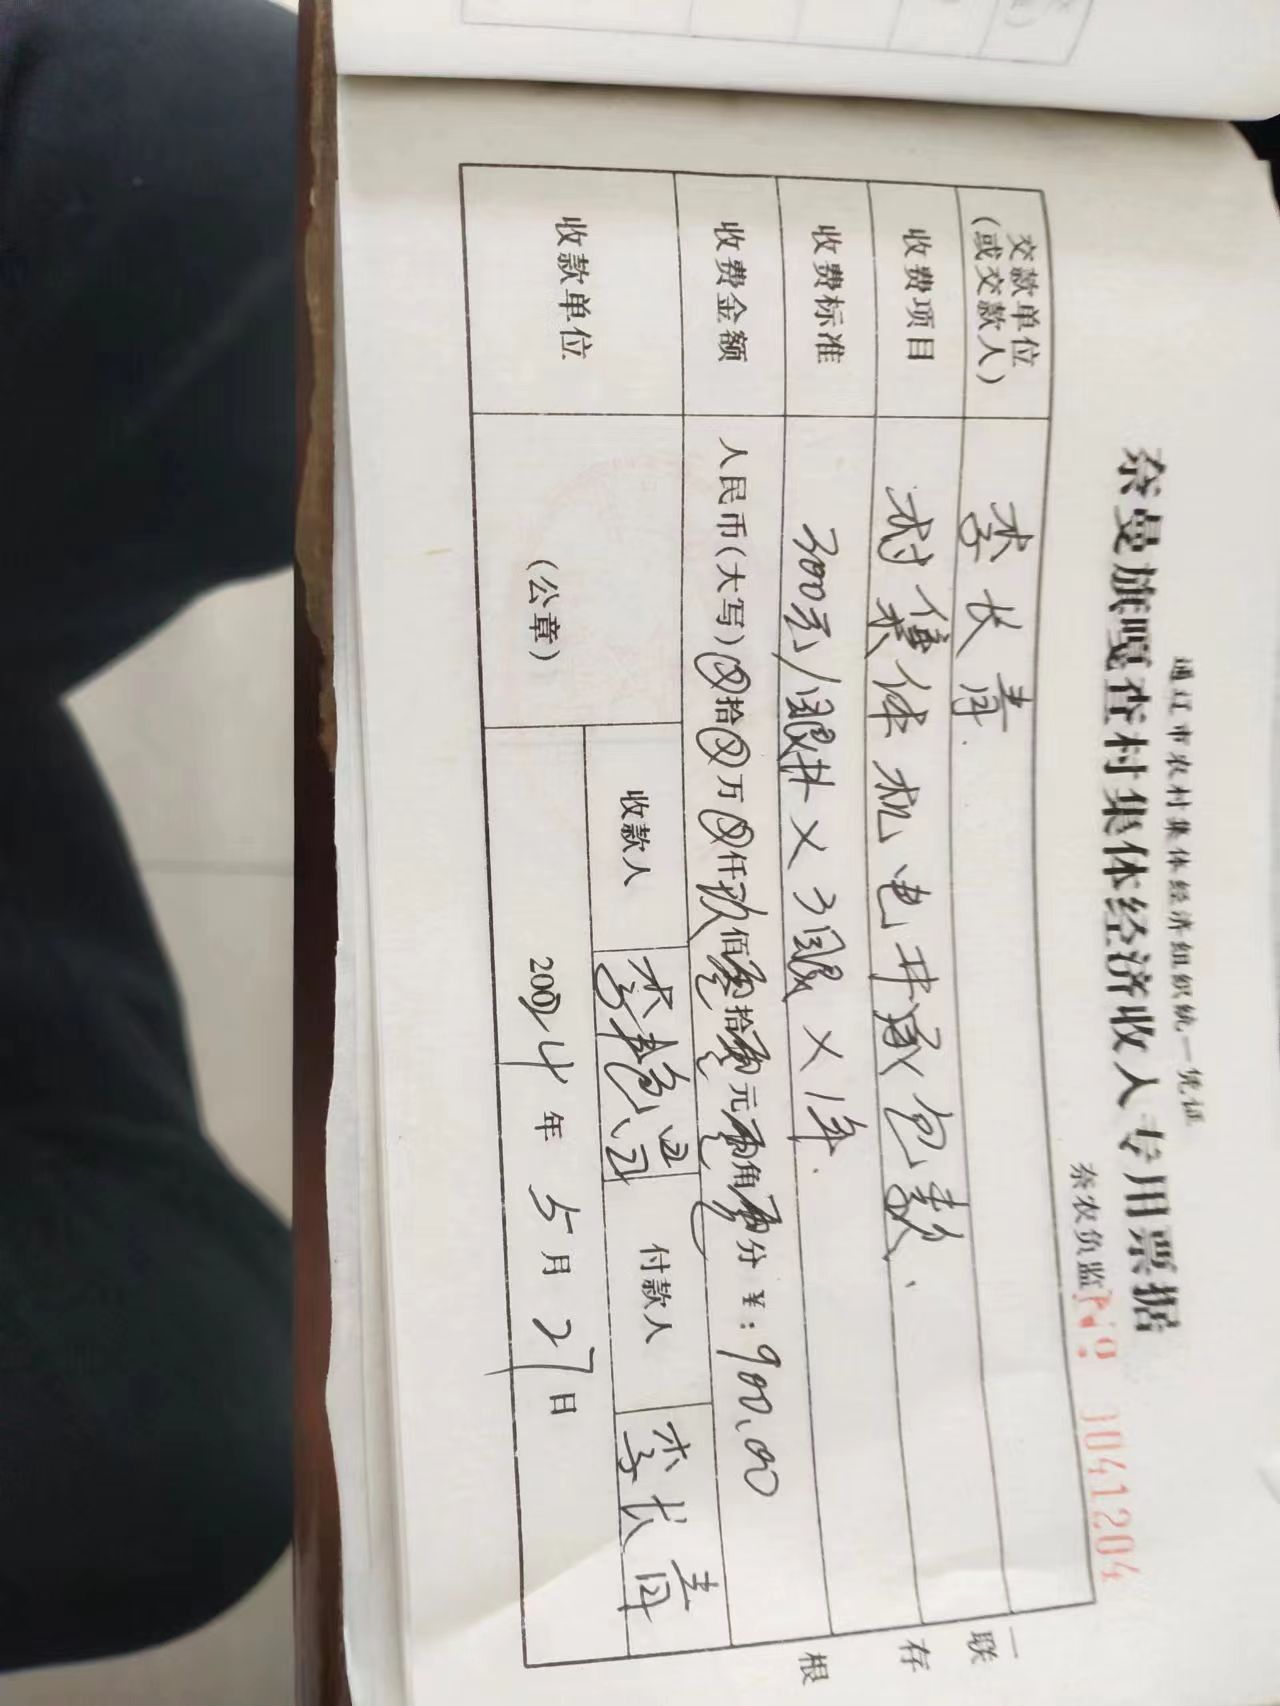 通辽市农村集体经济组织统一凭证
奈曼旗嘎查村集体经济收入专用票据
奈农负监 №: 3041204
交款单位（或交款人） 李长青
收费项目 村集体机电井承包款.
收费标准 300元/眼井×3眼×1年.
收费金额 人民币(大写)⊗拾⊗万⊗仟玖佰零拾零元零角零分 ¥: 900.00
收款单位 （公章） 收款人 付款人 李长青
年 5月27日
一联 存根